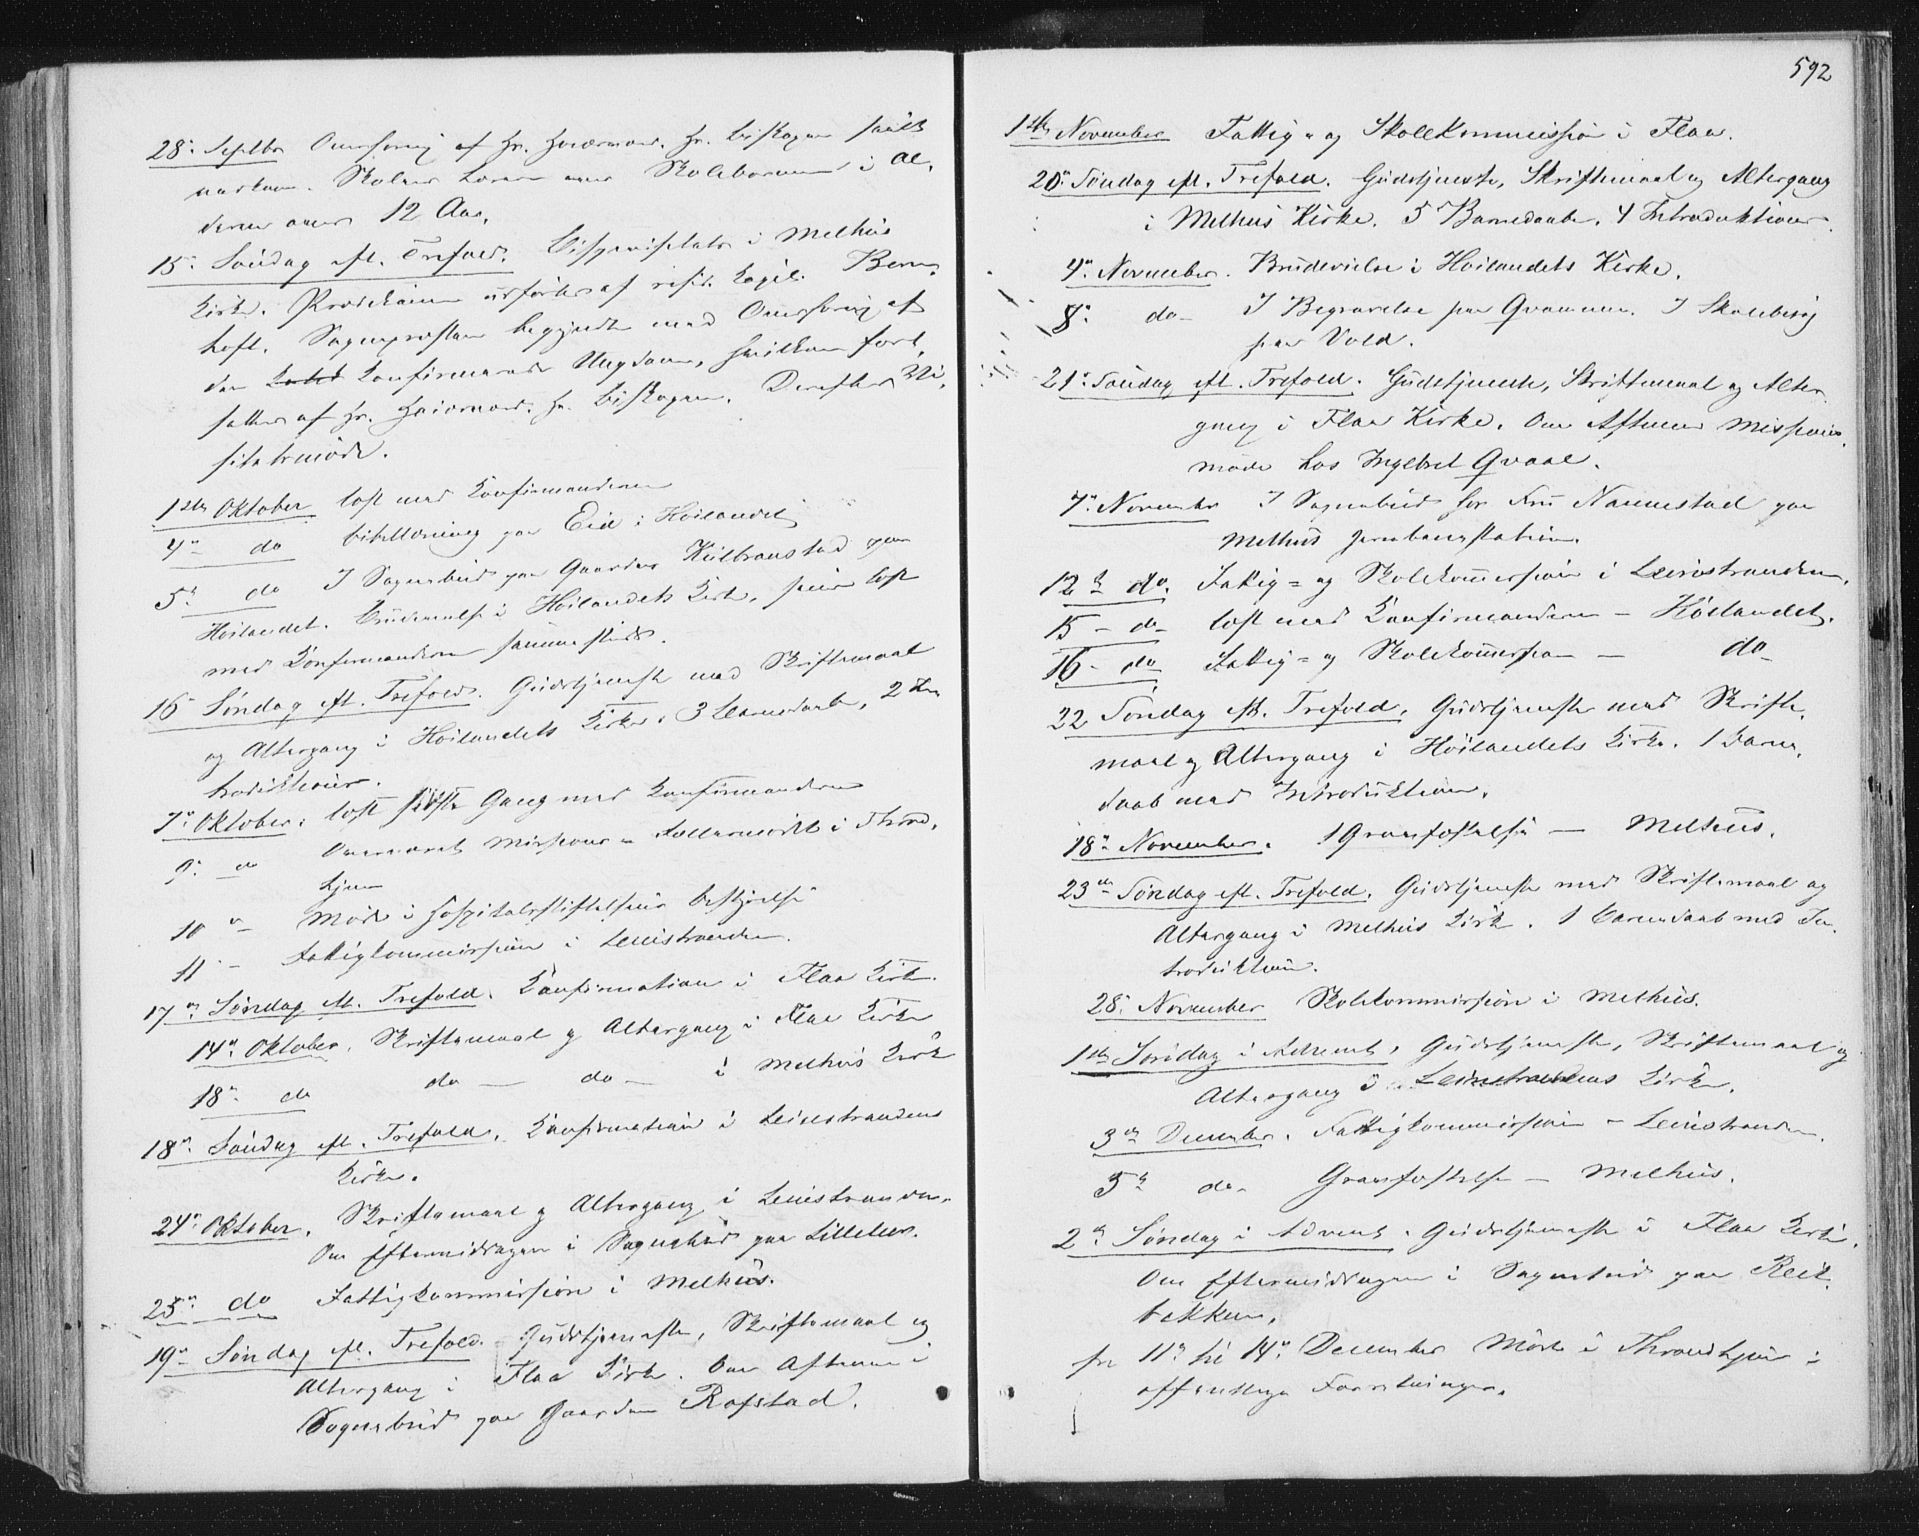 28. Septbr Overhøring af Hr. Høiærværd. Hr. Biskopen samt
Skolens Lærere over Skolebørnene i Al,
deren over 12 Aar.
15. Søndag eft. Trefold. Bispevisitats i Melhus
Kirke. Prædikenen udførtes af resid. Kapel. Bern,
hoft. Sognepresten begyndte med Overhøring af
den Konfirmerede Ungdom, hvilken fort,
sattes af Hr. Høiærværd. Hr. Biskopen. Derefter Vi,
sitatsmøde.
1ste Oktober læst med Konfirmanderne
4de do bibellæsning paa Eid i Høilandet
5. do I Sognebud paa Gaarden Kulbranstad paa
Høilandet. Brudevielse i Høilandets Kirke, siden læst
med Konfirmanderne sammesteds.
16 Søndag eft. Trefold. Gudstjeneste med Skriftemaal
og Altergang i Høilandets Kirke. 3 Barnedaab, 2 In,
troduktioner.
7. Oktober: læst sidste Gang med Konfirmanderne
9. do Overværet Missions-Fællesmøde i Thrond,
hjem
10 " Møde i Hospitalsstiftelsens bestyrelse
11 - Fattigkommission i Leinstranden.
17de Søndag eft. Trefold. Konfirmation i Flaa Kirke.
14de Oktober. Skriftemaal og Altergang i Flaa Kirke
18. do do — do — i Melhus Kirke
18. Søndag eft. Trefold. Konfirmation i Leinstrandens
Kirke.
24de Oktober. Skriftemaal og Altergang i Leinstranden.
Om Eftermiddagen i Sognebud paa Lilleler.
25de do Fattigkommission i Melhus.
19de Søndag eft. Trefold. Gudstjeneste, Skriftemaal og
Altergang i Flaa Kirke. Om Aftenen i
Sognebud paa Gaarden Rofstad.
592
1ste November Fattig- og Skolekommission i Flaa.
20. Søndag eft. Trefold. Gudstjeneste, Skriftemaal og Altergang
i Melhus Kirke. 5 Barnedaab. 4 Introduktioner.
4. November. Brudevielse i Høilandets Kirke.
8. do- I Begravelse paa Qvammen. I Skolebesøg
paa Vold.
21. Søndag eft. Trefold. Gudstjeneste, Skriftemaal og Alter,
gang i Flaa Kirke. Om Aftenen Missions,
møde hos Ingebret Qvaal.
7. November I Sognebud for Fru Nannestad paa
Melhus Jernbanestation.
12te do. Fattig= og Skolekommission i Leinstranden.
15 - do- læst med Konfirmanderne - Høilandet.
16 - do Fattig= og Skolekommission — do-
22 Søndag eft. Trefold. Gudstjeneste med Skrifte,
maal og Altergang i Høilandets Kirke. 1 Barne,
daab med Introduktion.
18de November. 1 Gravfæstelse — Melhus.
23de Søndag eft. Trefold. Gudstjeneste med Skriftemaal og
Altergang i Melhus Kirke. 1 Barnedaab med In,
troduktion.
28. November Skolekommission i Melhus.
1ste Søndag i Advent. Gudstjeneste, Skriftemaal og
Altergang i Leinstrandens Kirke.
3de December. Fattigkommission - Leinstranden.
5te do. Gravfæstelse - Melhus.
2de Søndag i Advent. Gudstjeneste i Flaa Kirke.
Om Eftermiddagen i Sognebud paa Reit,
bakken.
fra 11te til 14de December Møde i Throndhjem i
offentlige Forretninger.